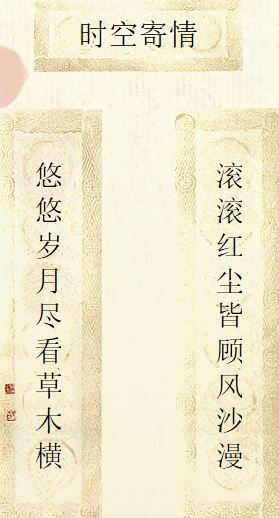 时空寄情
滚滚红尘皆顾风沙漫
悠悠岁月尽看草木横